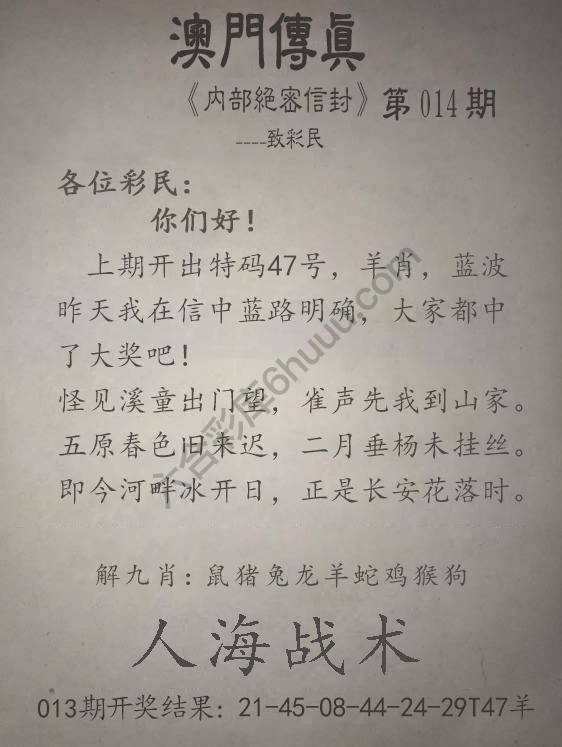 澳門傳真
《内部絕密信封》第014期
----致彩民
各位彩民：
你们好！
上期开出特码47号，羊肖，蓝波
昨天我在信中蓝路明确，大家都中
了大奖吧！
怪见溪童出门望，雀声先我到山家。
五原春色旧来迟，二月垂杨未挂丝。
即今河畔冰开日，正是长安花落时。
解九肖：鼠猪兔龙羊蛇鸡猴狗
人海战术
013期开奖结果：21-45-08-44-24-29T47羊
六合彩库6huuu.com